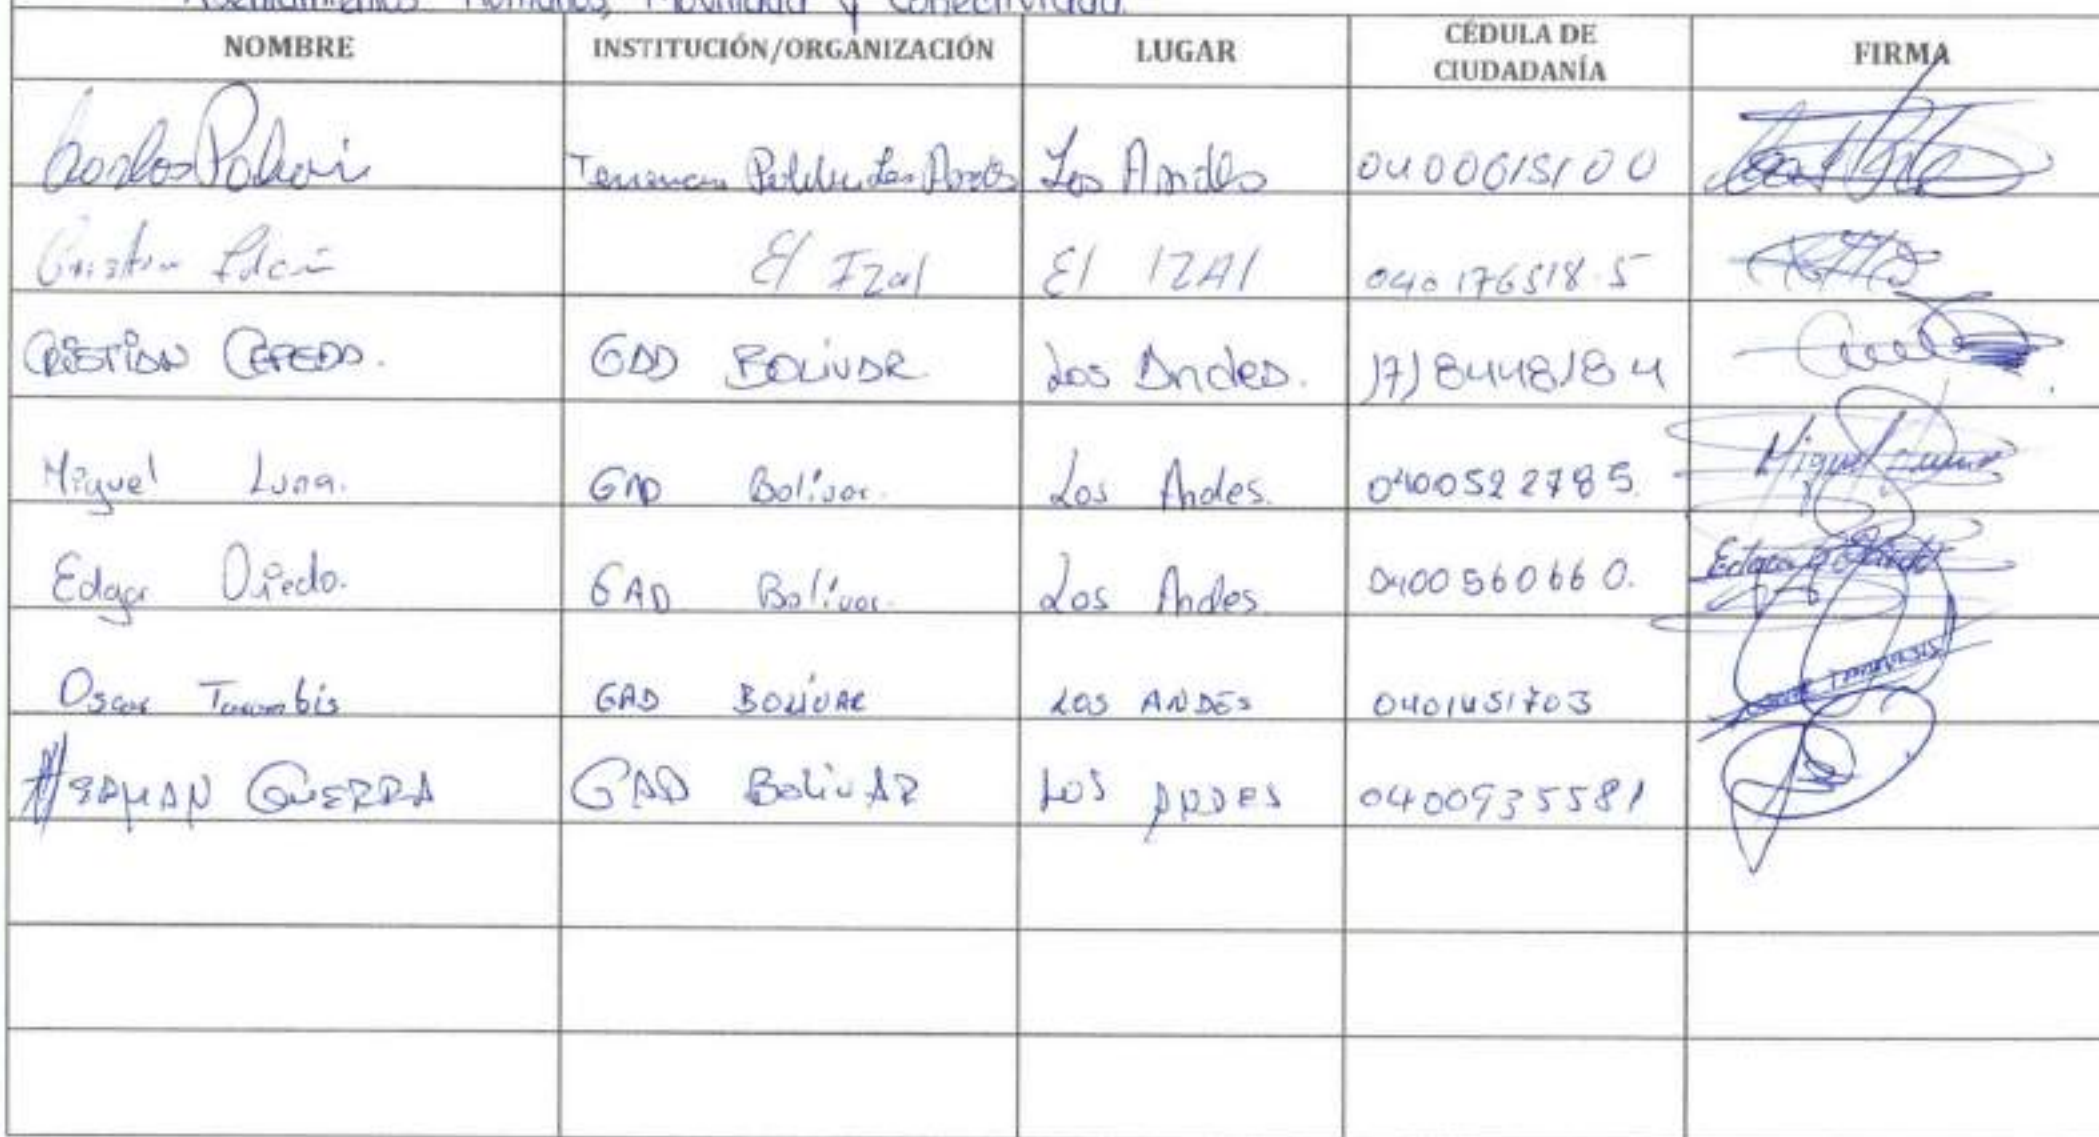 Asentamientos Humanos, Movilidad y Conectividad.
NOMBRE INSTITUCIÓN/ORGANIZACIÓN LUGAR CÉDULA DE CIUDADANÍA FIRMA
Carlos Los Andes 0400615100
El Izal El IZAl 040176518-5
CRISTIAN CEPEDA. GAD BOLIVAR Los Andes. 1718448184
Miguel Luna. GAD Bolivar. Los Andes. 0400522785. Miguel Luna
Edgar Oviedo. GAD Bolivar. Los Andes. 0400560660. Edgar
Oscar Tarambis GAD BOLIVAR LOS ANDES 0401451703
HERMAN GUERRA GAD BOLIVAR LOS ANDES 0400935581